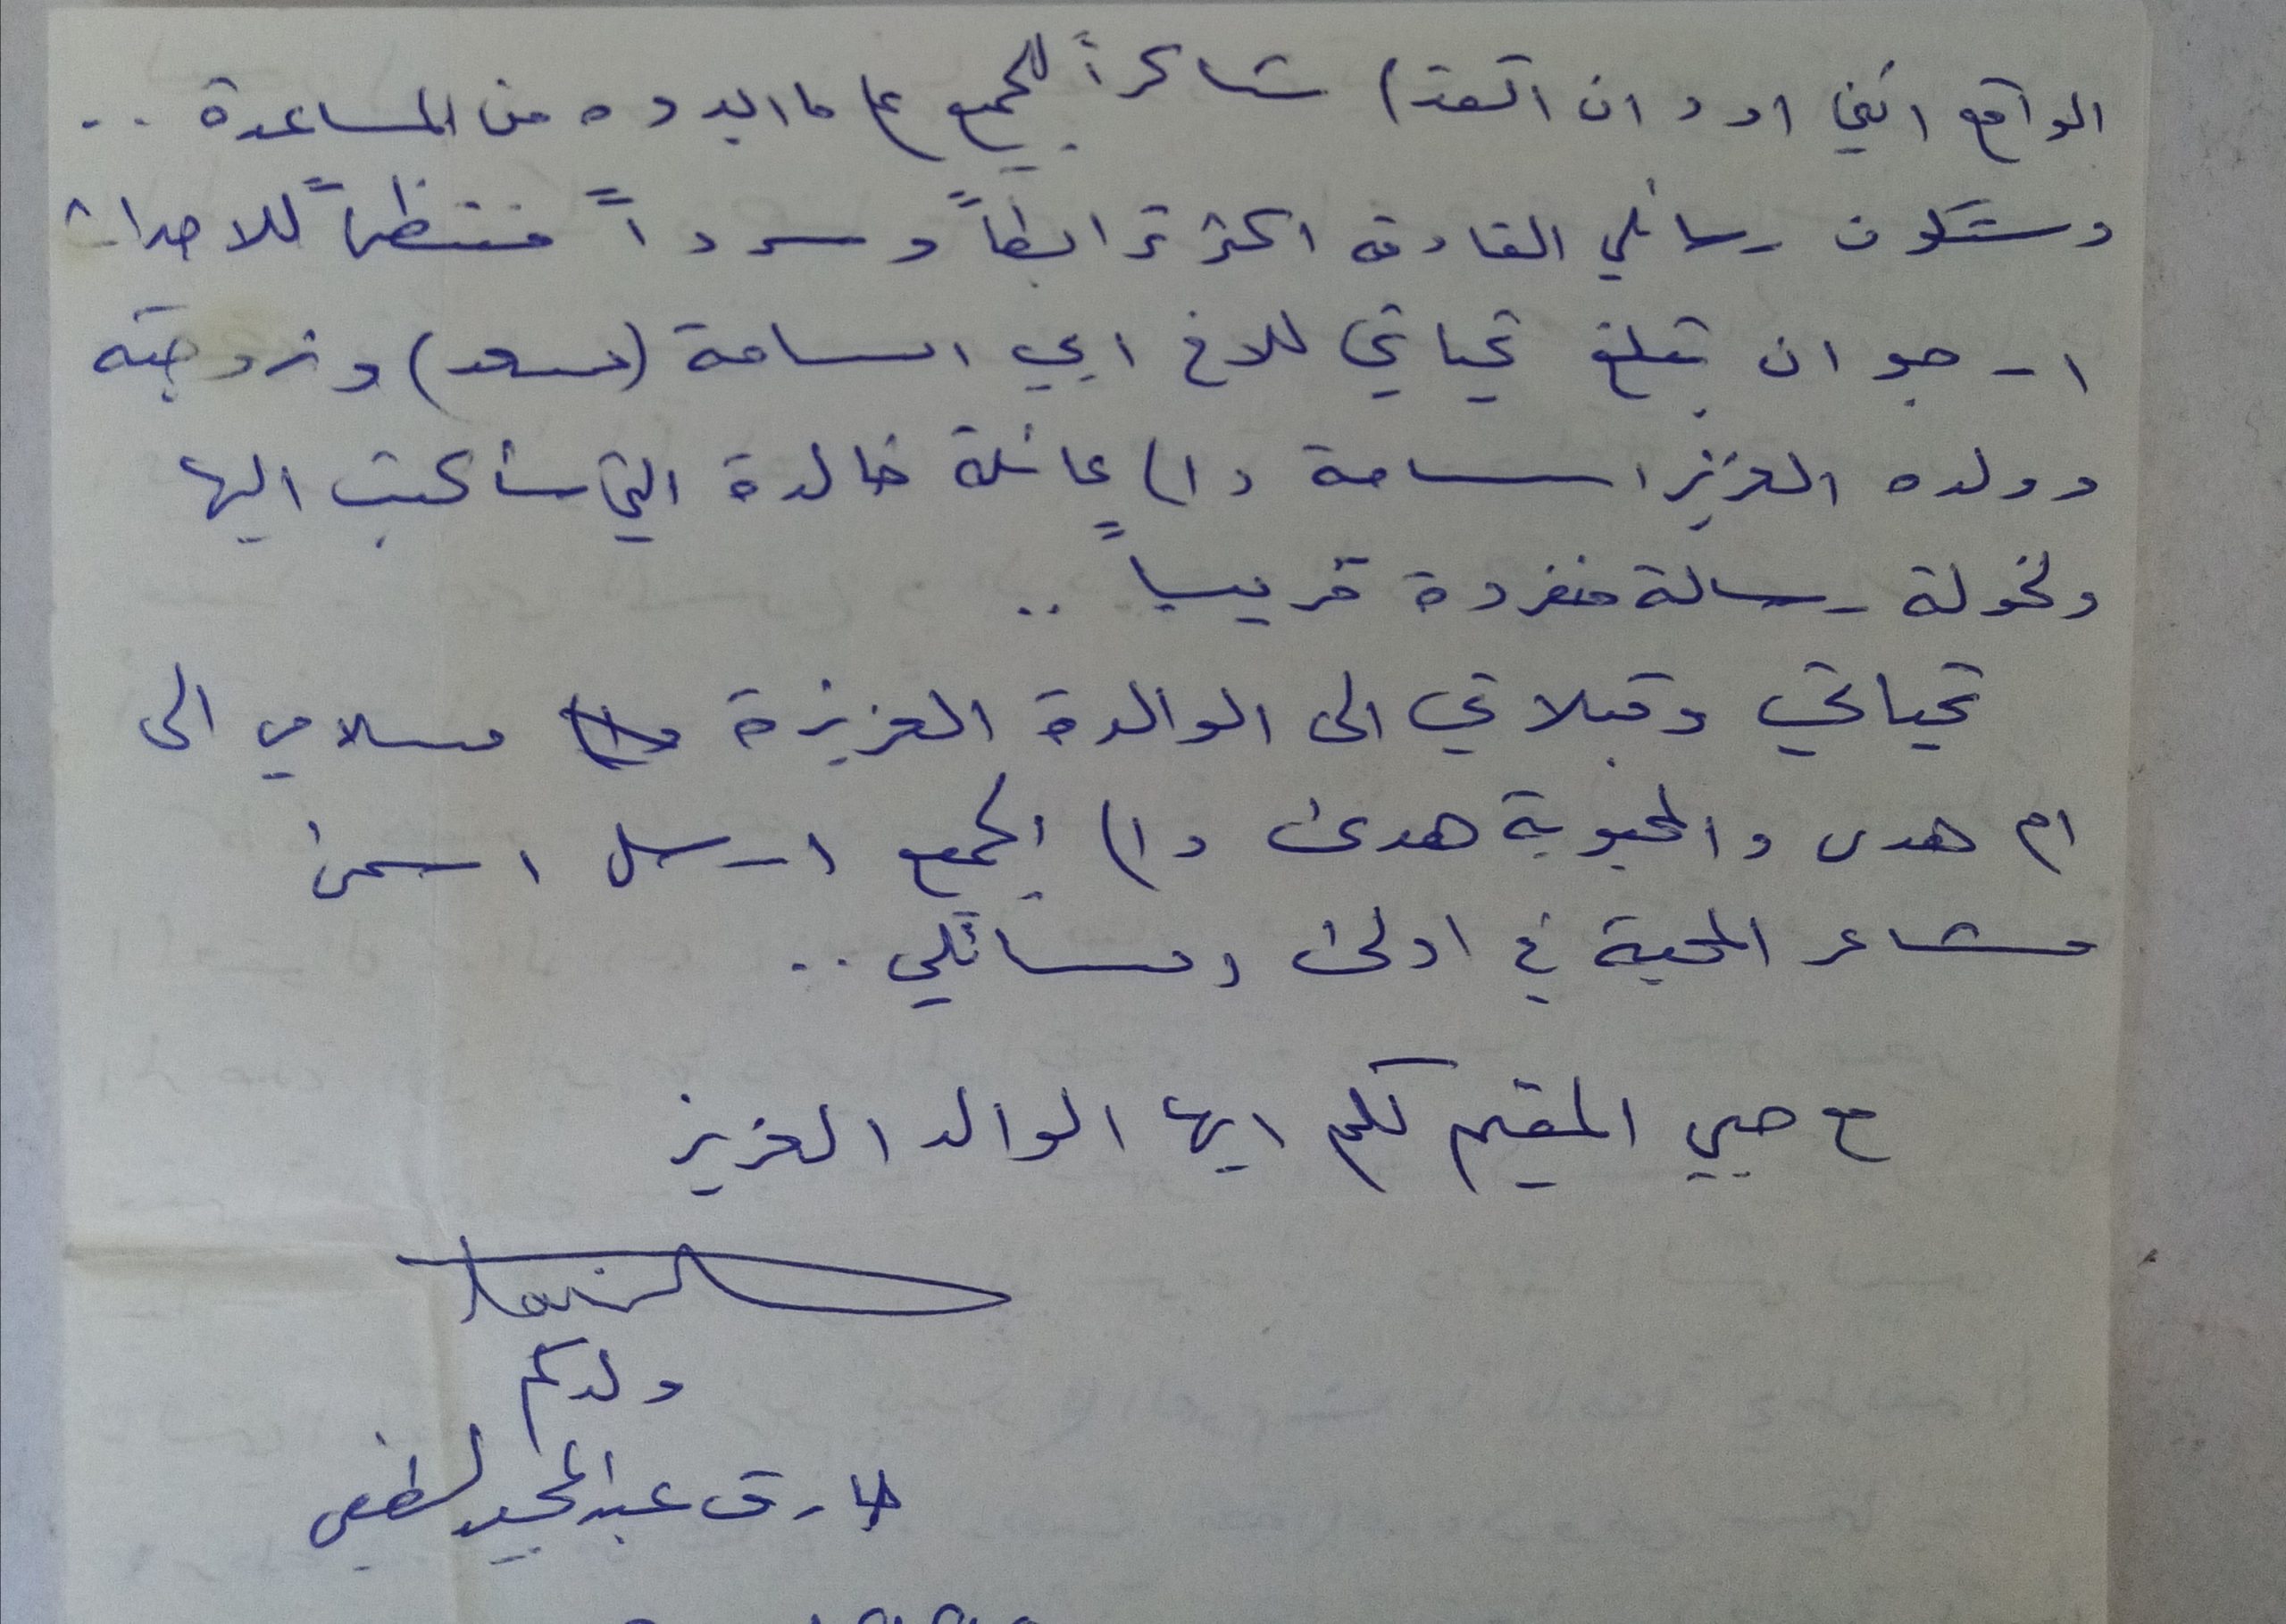 الواقع انني اود ان اتقدم شاكراً للجميع على ما ابدوه من المساعدة ..
وستكون رسائلي القادمة اكثر ترابطاً وسرداً منتظماً للاحداث
ارجو ان تبلغ تحياتي للاخ ابي اسامة (سعد) وزوجته
وولده العزيز اسامة والى عائلة خالدة التي سأكتب اليها
ولخولة رسالة منفردة قريباً ..
تحياتي وقبلاتي الى الوالدة العزيزة وسلامي الى
ام هدى والمحبوبة هدى والى الجميع ارسل اسمى
مشاعر المحبة في اولى رسائلي ..
مع حبي المقيم لكم ايها الوالد العزيز
ولدكم
طارق عبد المجيد لطفي